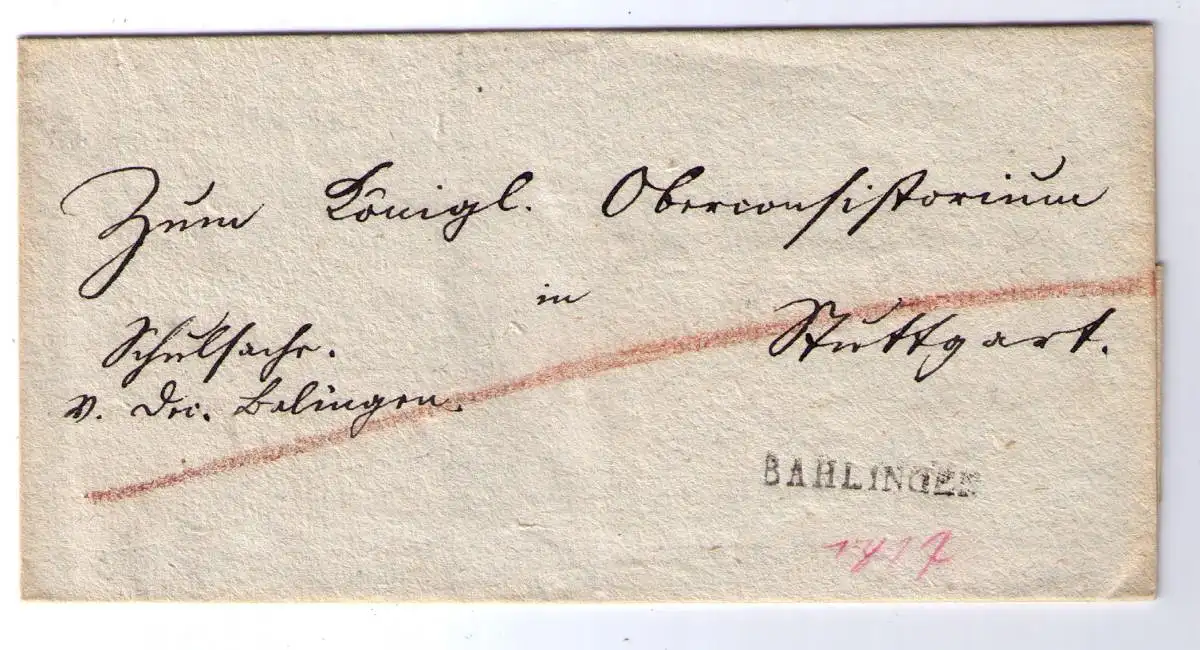 Zum Königl. Oberconsistorium
in
Stuttgart.
Schulsache.
v. Dec. Balingen.
BAHLINGEN
1817